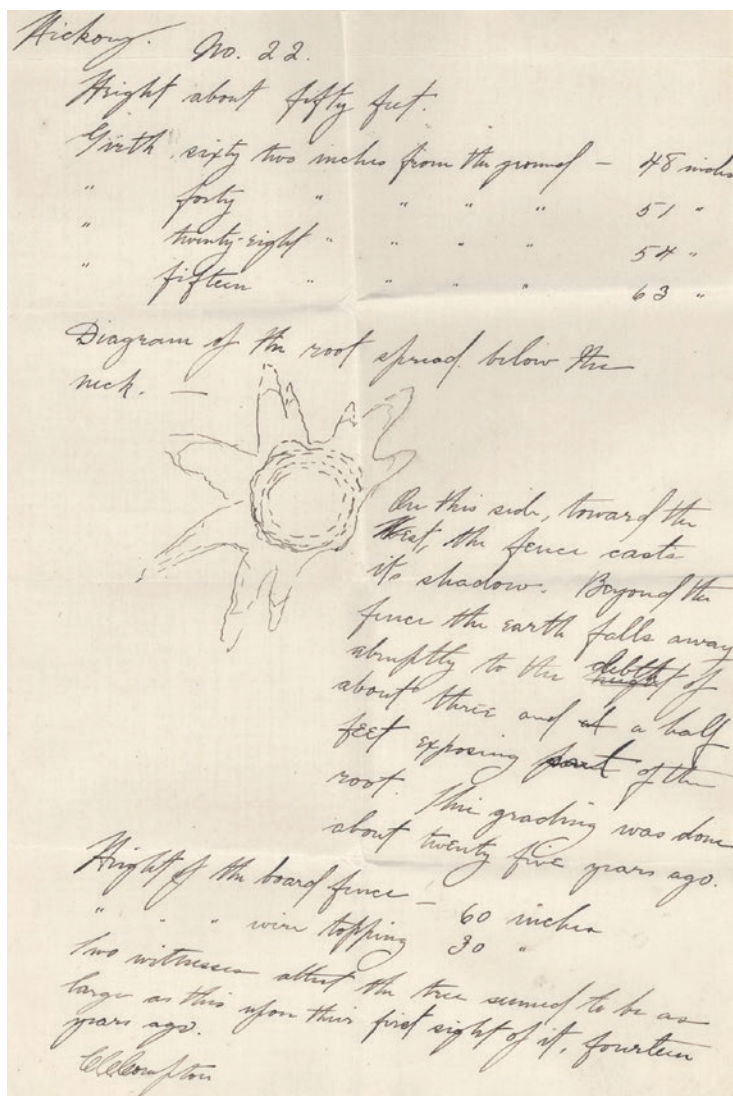 Hickory. No. 22.
Height about fifty feet.
Girth sixty two inches from the ground — 48 inches
" forty " " " " 51 "
" twenty-eight " " " " 54 "
" fifteen " " " " 63 "
Diagram of the root spread below the
neck. —
On this side, toward the
West, the fence casts
its shadow. Beyond the
fence the earth falls away
abruptly to the debth of
about three and a half
feet exposing part of the
root. This grading was done
about twenty five years ago.
Height of the board fence — 60 inches
" " " wire topping 30 "
Two witnesses attest the tree seemed to be as
large as this upon their first sight of it, fourteen
years ago.
Compton